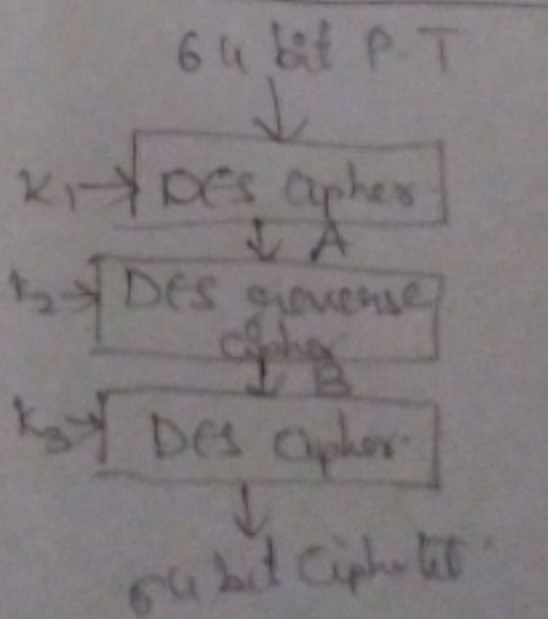 64 bit P.T
K1 → DES Cipher
A
K2 → DES reverse
cipher
B
K3 → DES Cipher
64 bit